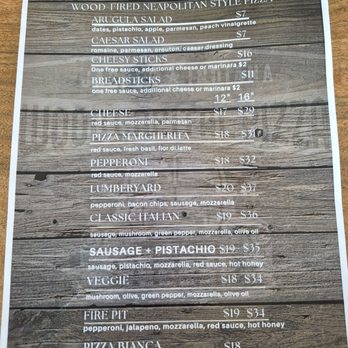 WOOD-FIRED NEAPOLITAN STYLE PIZZA
ARUGULA SALAD $7
dates, pistachio, apple, parmesan, peach vinaigrette
CAESAR SALAD $7
romaine, parmesan, crouton, caesar dressing
CHEESY STICKS $16
One free sauce, additional cheese or marinara $2
BREADSTICKS $11
one free sauce, additional cheese or marinara $2
12" 16"
CHEESE $17 $29
red sauce, mozzarella, parmesan
PIZZA MARGHERITA $18
red sauce, fresh basil, fior di latte
PEPPERONI $18 $32
red sauce, mozzarella
LUMBERYARD $20 $37
pepperoni, bacon chips, sausage, mozzarella
CLASSIC ITALIAN $19 $36
sausage, mushroom, green pepper, mozzarella, olive oil
SAUSAGE + PISTACHIO $19 $35
sausage, pistachio, mozzarella, red sauce, hot honey
VEGGIE $18 $34
mushroom, olive, green pepper, mozzarella, olive oil
FIRE PIT $19 $34
pepperoni, jalapeno, mozzarella, red sauce, hot honey
PIZZA BIANCA $18